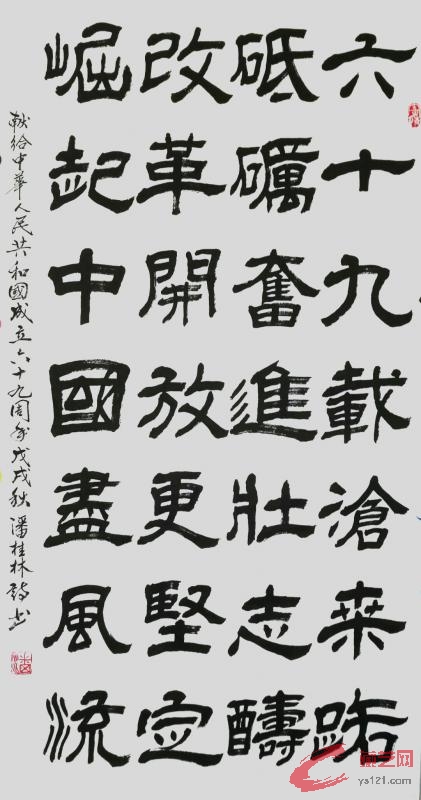 六十九載滄桒路
砥礪奮進壯志醻
改革開放更堅定
崛起中國盡風流
献给中華人民共和國成立六十九周年戊戌秋潘桂林詩书
艺网
ys121.com